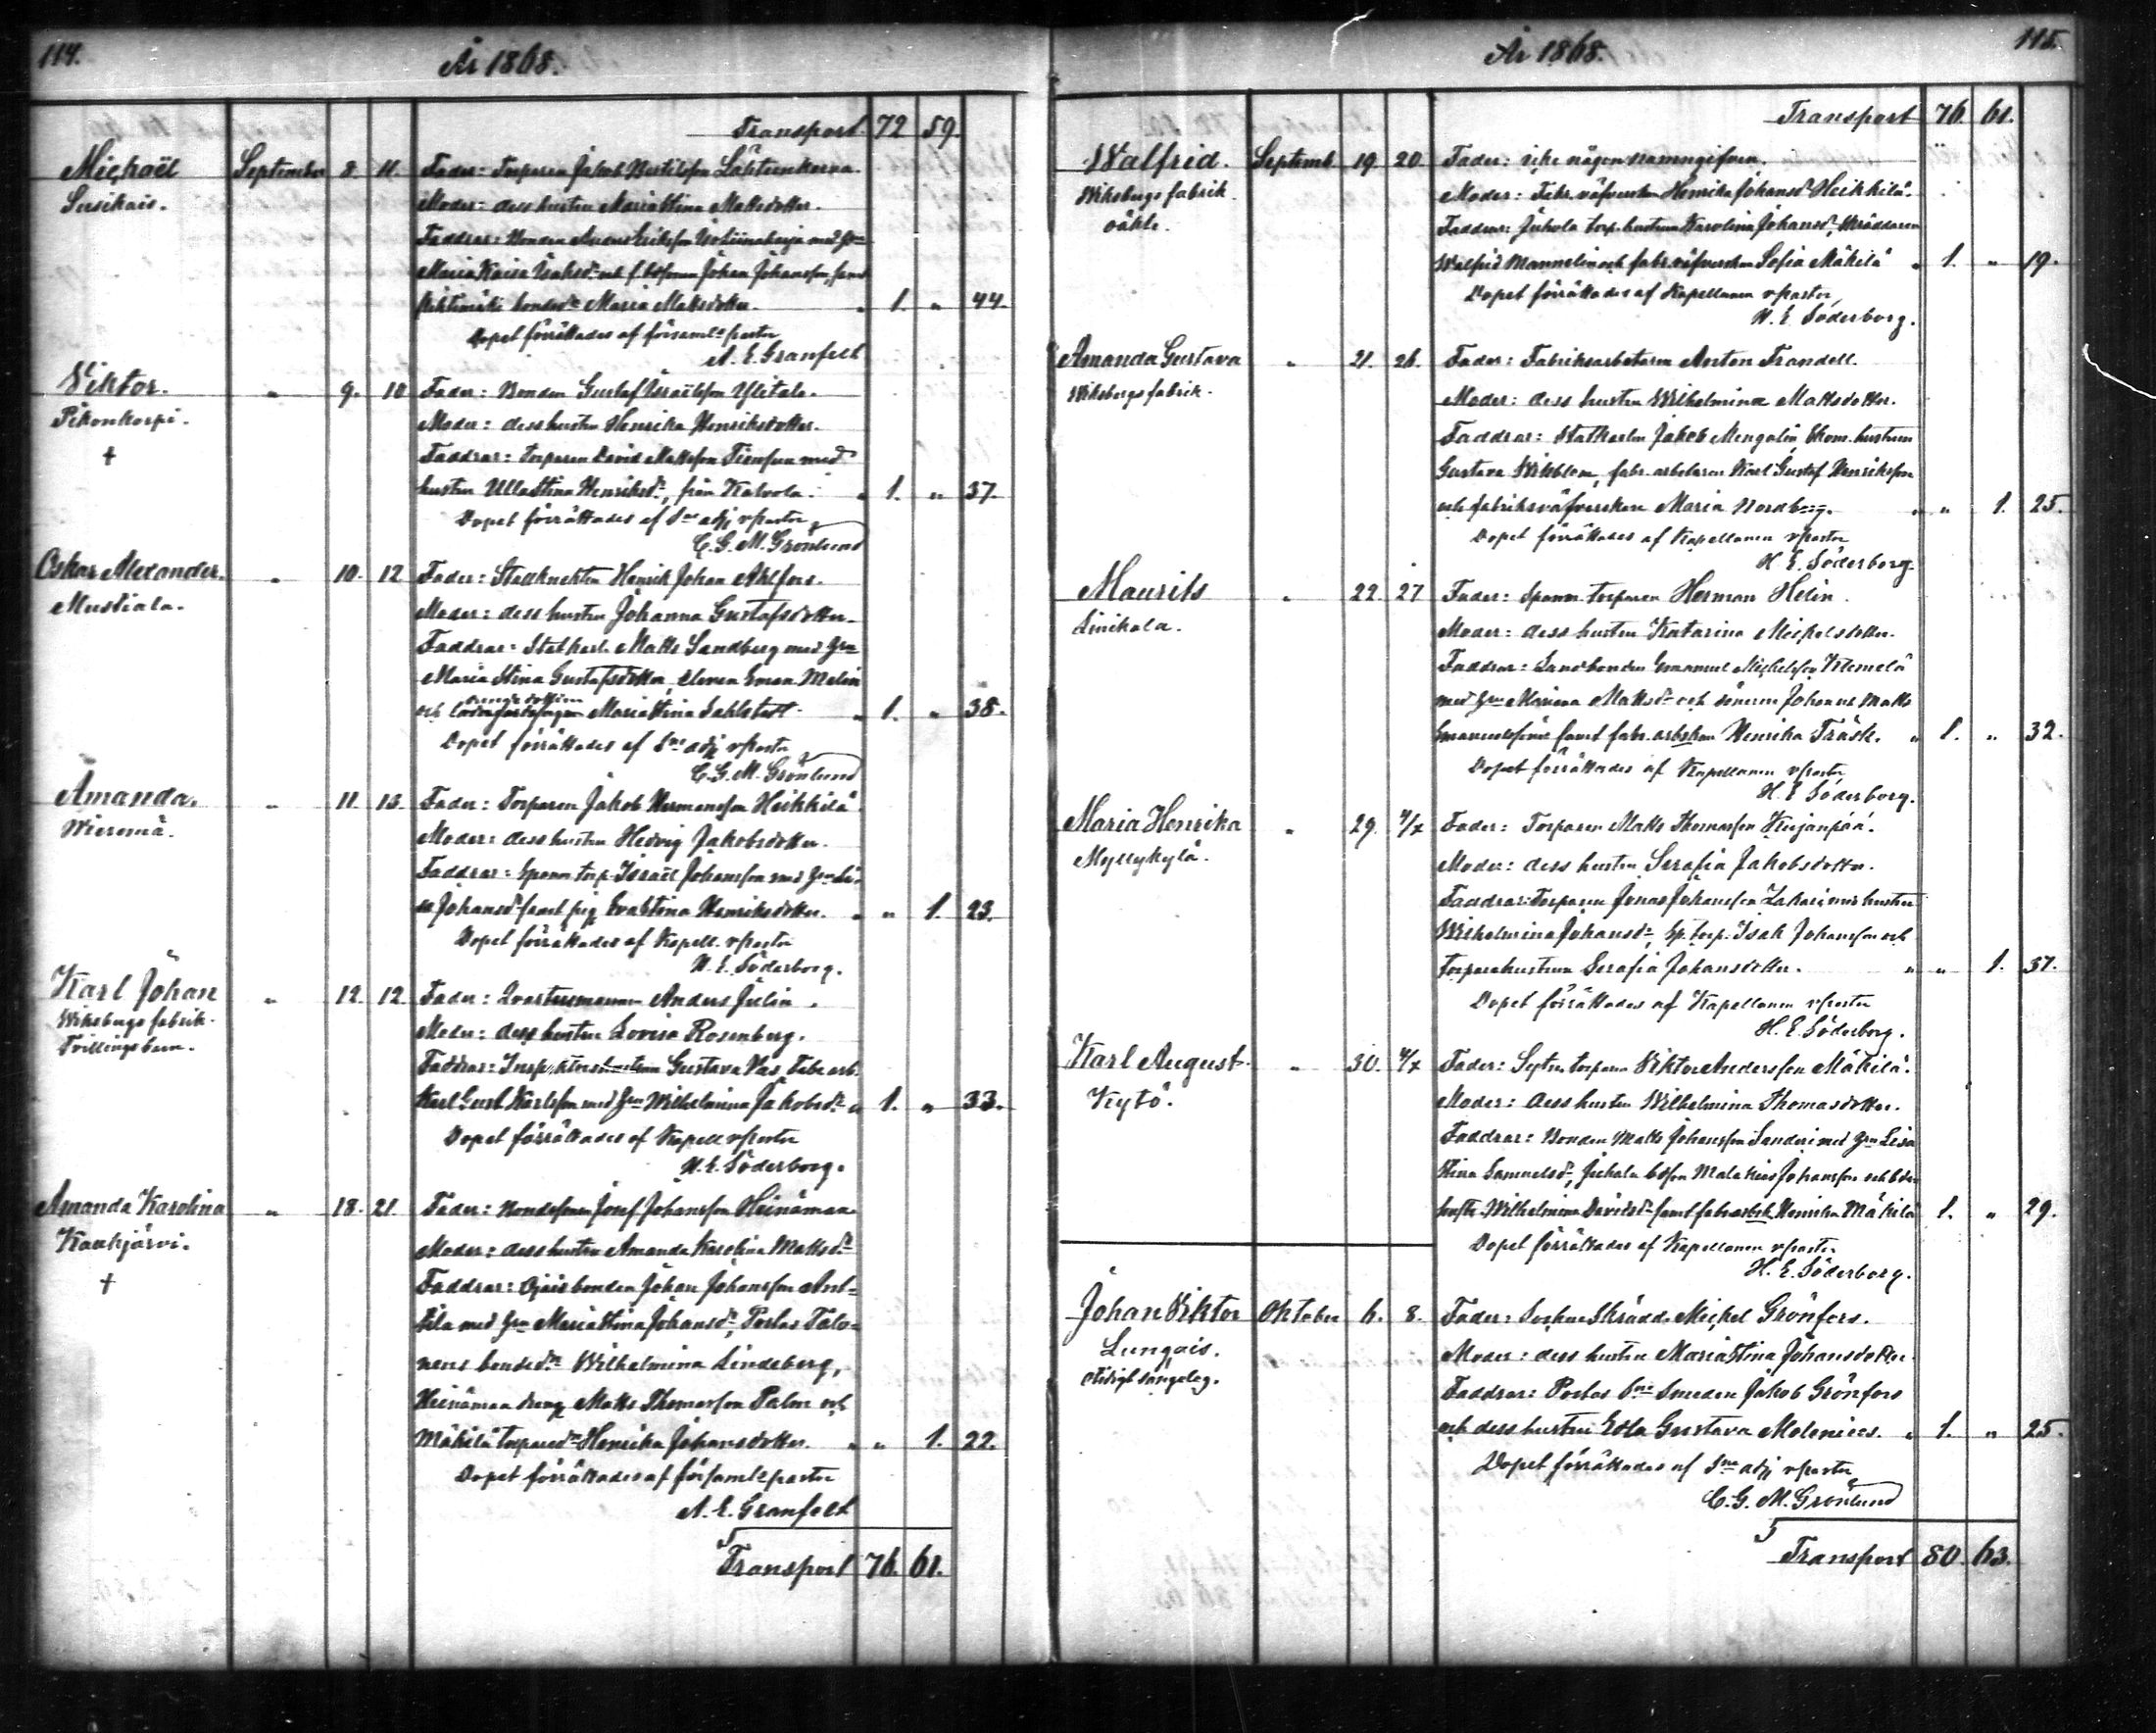 114.
År 1868.
Transport 72 59.
Michaël September 8 11. Fader: Torparen Jakob Bertilsson
Susikais. Moder: dess hustru Maria Stina Mattsdotter.
Faddrar: Bonden Anders Eriksson Iso Liinaharja med Hu
Maria Kaisa Isaksdr och f. bdsonen Johan Johansson, samt
bondedr Maria Mattsdotter. " 1. " 44.
Dopet förrättades af församls pastor
A. E. Granfelt
Viktor. " 9. 10 Fader: Bonden Gustaf Israëlsson Ylitalo.
Pikonkorpi. Moder: dess hustru Henrika Henriksdotter.
† Faddrar: torparen David Mattsson med
hustru Ulla Stina Henriksdr, från Kalvola. " 1. " 37.
Dopet förrättades af Sne adj vpastor
C. G. M. Grönlund
Oskar Alexander. " 10. 12 Fader: Stallknekten Henrik Johan Ahlfors.
Mustiala. Moder: dess hustru Johanna Gustafsdotter.
Faddrar: Statkarln Matts Sandberg med Hru
Maria Stina Gustafsdotter, eleven Eman. Melin
och Maria Stina Sahlstedt. " 1. " 38.
Dopet förrättades af Sne adj vpastor
C. G. M. Grönlund
Amanda. " 11. 13. Fader: Torparen Jakob Hermansson Heikkilä
Wieremä. Moder: dess hustru Hedvig Jakobsdotter.
Faddrar: Spanm torp. Israël Johansson med Hru Li-
sa Johansdr samt pig. Eva Stina Henriksdotter. " " 1. 23.
Dopet förrättades af Kapell. vpastor
H. E. Söderborg.
Karl Johan " 12. 12 Fader: Qvartermannen Anders Julin.
Wiksbergs fabrik. Moder: dess hustru Lovisa Rosenberg.
Tvillingsbarn. Faddrar: Inspektorshustrun Gustava Vas, Fabr. arb.
Karl Gust. Karlsson med Hru Wilhelmina Jakobsdr " 1. " 33.
Dopet förrättades af Kapell vpastor
H. E. Söderborg.
Amanda Karolina " 18. 21. Fader: Bondesonen Josef Johansson Heinämaa
Kaukjärvi. Moder: dess hustru Amanda Karolina Mattsdr
† Faddrar: Ojais bonden Johan Johansson Ant-
tila med Hru Maria Stina Johansdr, Portas Talo-
nens bondedr Wilhelmina Lindeberg,
Heinämaa dreng Matts Thomasson Palon och
Mäkilä torparedr Henrika Johansdotter. " " 1. 22.
Dopet förrättades af församls pastor
A. E. Granfelt
Transport 76. 61.
115.
År 1868.
Transport 76. 61.
Walfrid. Septemb. 19. 20. Fader: icke någon namngifven.
Wiksbergs fabrik. Moder: Fabr. väfverskan Henrika Johansdr Heikkilä.
oäkte. Faddrar: Jokola torp. hustrun Karolina Johansdr, Skräddaren
Walfrid Mannelin och fabr. väfverskan Sofia Mäkilä " 1. " 19.
Dopet förrättades af Kapellanen vpastor
H. E. Söderborg.
Amanda Gustava " 21. 26. Fader: Fabriksarbetaren Anton Trandell.
Wiksbergs fabrik. Moder: dess hustru Wilhelmina Mattsdotter.
Faddrar: Statkarln Jakob Mengalin, Ekon. hustrun
Gustava Wikblom, fabr. arbetaren Karl Gustaf Henriksson
och fabriksväfverskan Maria Nordberg. " " 1. 25.
Dopet förrättades af Kapellanen vpastor
H. E. Söderborg.
Maurits " 22. 27 Fader: Spanm. torparen Herman Helin.
Linikala. Moder: dess hustru Katarina Mickelsdotter.
Faddrar: Landbonden Emanuel Mickelsson Klemelä
med Hru Mariana Mattsdr och sönerne Johan och Matts
samt fabr. arbskan Henrika Träsk. " 1. " 32.
Dopet förrättades af Kapellanen vpastor
H. E. Söderborg.
Maria Henrika " 29. 4/X Fader: Torparen Matts Thomasson Kujanpää.
Myllykylä. Moder: dess hustru Serafia Jakobsdotter.
Faddrar: Torparen Jonas Johansson Zakari med hustru
Wilhelmina Johansdr, Sp. torp. Isak Johansson och
torparehustrun Serafia Johansdotter. " " 1. 37.
Dopet förrättades af Kapellanen vpastor
H. E. Söderborg.
Karl August " 30. 4/X Fader: Sytnin torparen Viktor Andersson Mäkilä.
Kytö. Moder: dess hustru Wilhelmina Thomasdotter.
Faddrar: Bonden Matts Johansson Sanderi med Hru Lisa
Stina Samuelsdr, Jokola bdson Malakias Johansson och bde
hustr. Wilhelmina Davidsdr samt fabr. arbsk. Henrika Mäkilä 1. " 29.
Dopet förrättades af Kapellanen vpastor
H. E. Söderborg.
Johan Viktor Oktober 6. 8. Fader: Sockne Skrädd. Mickel Grönfors.
Lungois. Moder: dess hustru Maria Stina Johansdotter
Faddrar: Portas Sne Smeden Jakob Grönfors
och dess hustru Edla Gustava Molonices. " 1. " 25.
Dopet förrättades af Sne adj vpastor
C. G. M. Grönlund
Transport 80. 63.